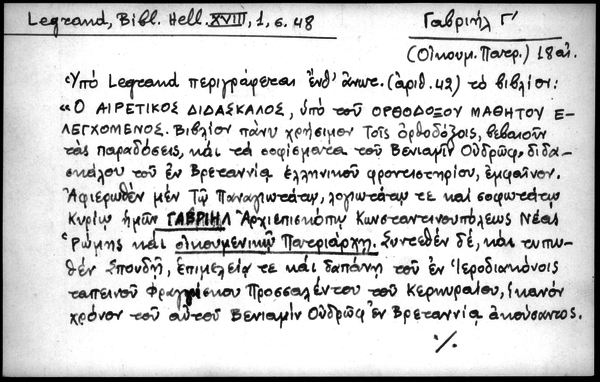 Legrand, Bibl. Hell. XVIII, 1, σ. 48
Γαβριήλ Γ'
(Οἰκουμ. Πατρ.) 18 αἰ.
Ὑπό Legrand περιγράφεται ἐνθ' ἀνωτ. (ἀριθ. 42) τό βιβλίον:
«Ο ΑΙΡΕΤΙΚΟΣ ΔΙΔΑΣΚΑΛΟΣ, ὑπό τοῦ ΟΡΘΟΔΟΞΟΥ ΜΑΘΗΤΟΥ Ε-
ΛΕΓΧΟΜΕΝΟΣ. Βιβλίον πάνυ χρήσιμον τοῖς ὀρθοδόξοις, βεβαιοῦν
τάς παραδόσεις, καί τά σοφίσματα τοῦ Βενιαμίν Οὐδρώφ, διδα-
σκάλου τοῦ ἐν Βρεταννίᾳ ἑλληνικοῦ φροντιστηρίου, ἐμφαῖνον.
Ἀφιερωθέν μέν Τῷ Παναγιωτάτῳ, λογιωτάτῳ τε καί σοφωτάτῳ
Κυρίῳ ἡμῶν ΓΑΒΡΙΗΛ Ἀρχιεπισκόπῳ Κωνσταντινουπόλεως Νέας
Ῥώμης καί οἰκουμενικῷ Πατριάρχῃ. Συντεθέν δέ, καί τυπω-
θέν Σπουδῇ, ἐπιμελείᾳ τε καί δαπάνῃ τοῦ ἐν Ἱεροδιακόνοις
ταπεινοῦ Φραγγίσκου Προσσαλέντου τοῦ Κερκυραίου, ἱκανόν
χρόνον τοῦ αὐτοῦ Βενιαμίν Οὐδρώφ ἐν Βρεταννίᾳ ἀκούσαντος.
./.